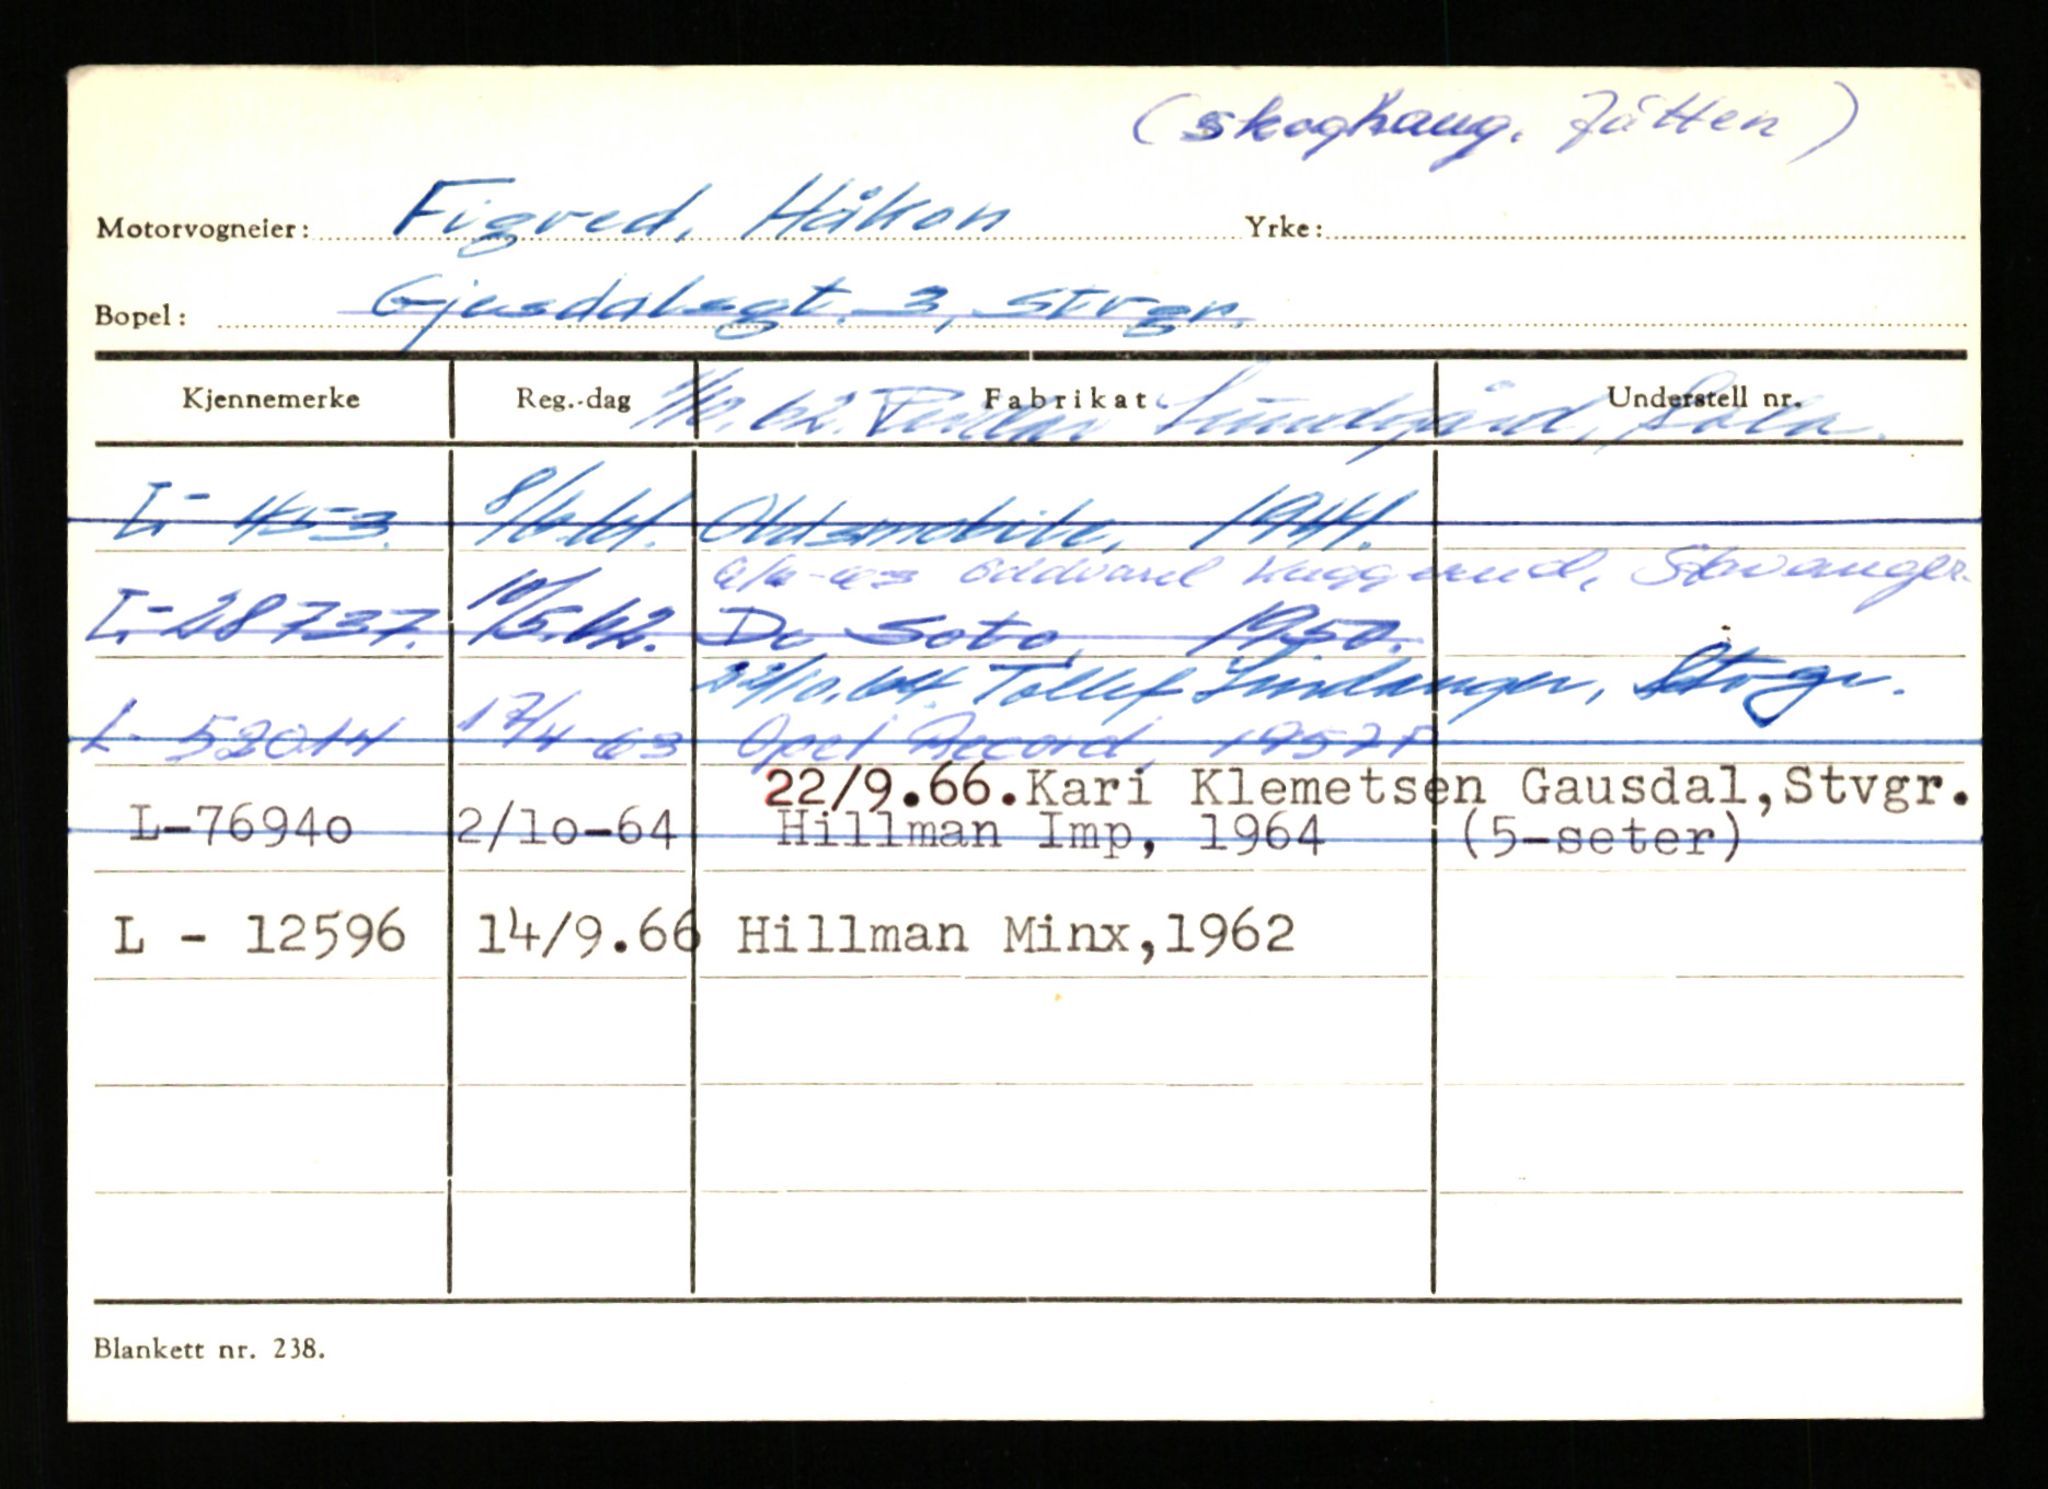 (Skoghaug. Jåtten)
Motorvogneier: Figved, Håkon Yrke:
Bopel: Gjesdalsgt. 3, Stvgr.
Kjennemerke Reg.-dag Fabrikat Understell nr.
Lundgård, Sola.
L- 453. 8/6.61. Oldsmobile, 1941.
Oddvard Kuggerud, Stavanger.
L-28737. 10/5.62. De Soto, 1950.
22/10.64. Tollef Lindanger, Stvgr.
L- 53014 17/4-63 Opel Record, 1957
22/9.66.Kari Klemetsen Gausdal,Stvgr.
L-7694o 2/1o-64 Hillman Imp, 1964 (5-seter)
L - 12596 14/9.66 Hillman Minx,1962
Blankett nr. 238.